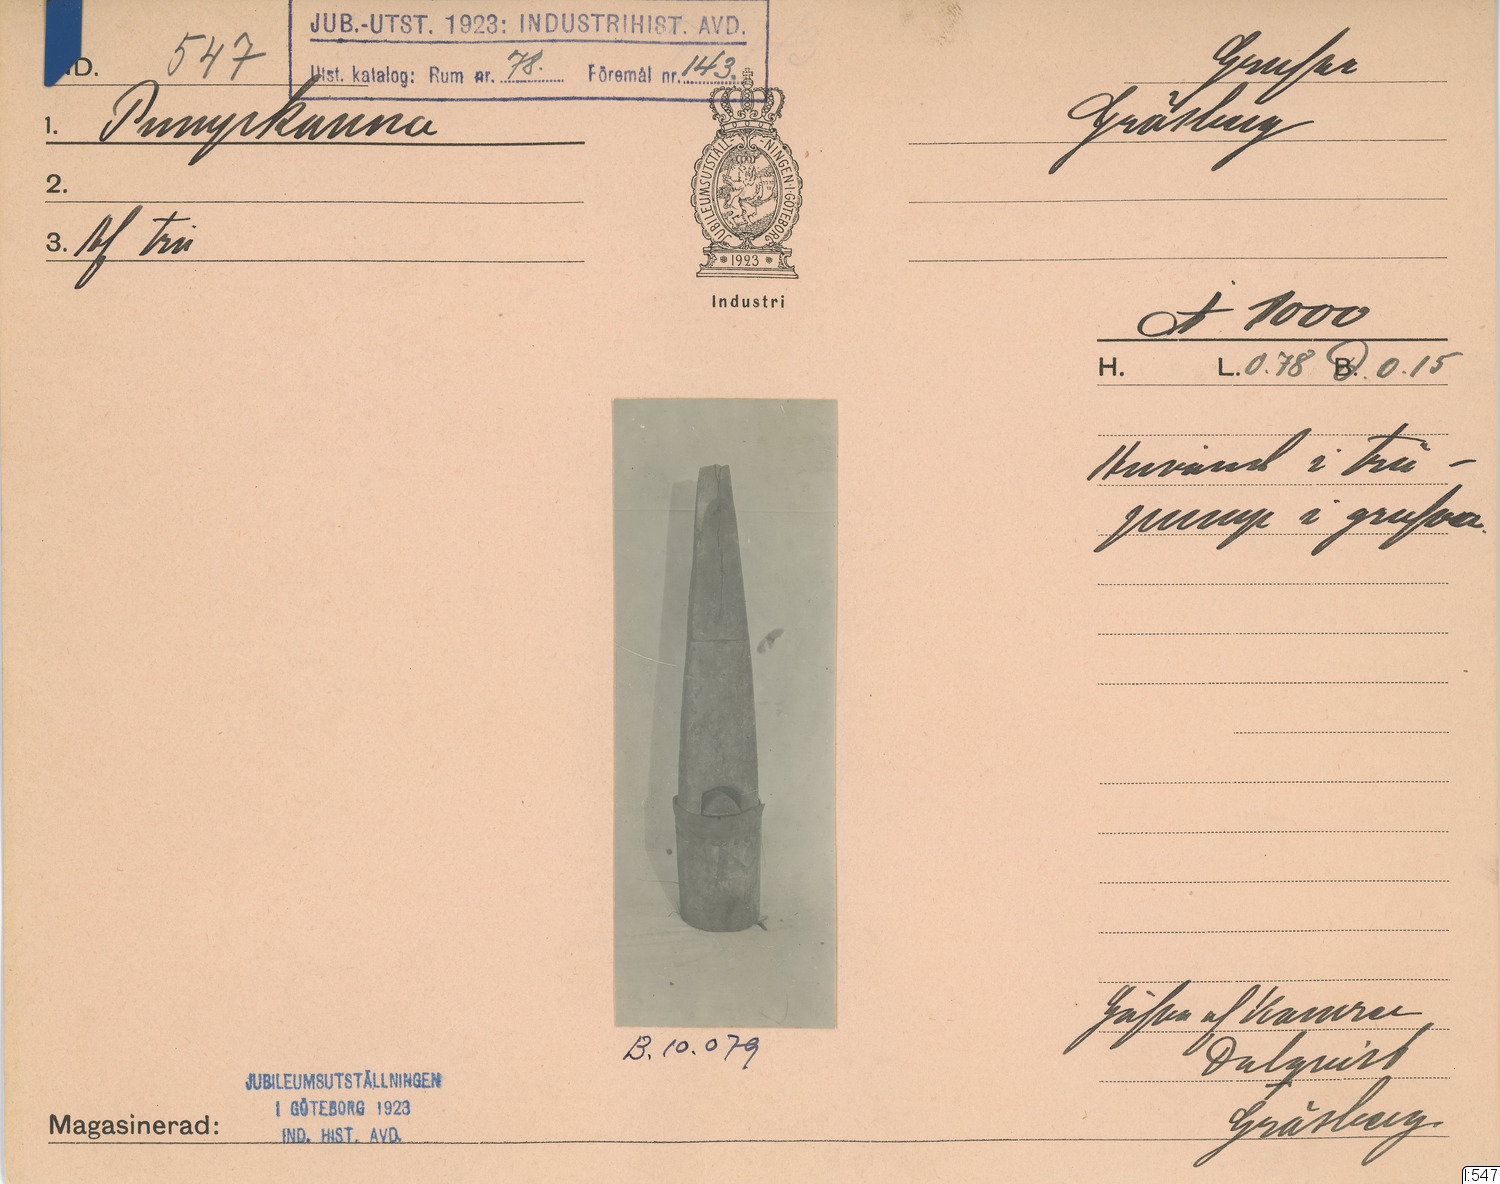 JUB.-UTST. 1923: INDUSTRIHIST. AVD.
Utst. katalog: Rum nr. 78. Föremål nr. 143.
IND. 547
1. Pumpkanna
2.
3. Af trä
JUBILEUMSUTSTÄLL-NINGEN·I·GÖTEBORG
* 1923 *
Industri
Grufva
Gräsberg
1000
H. L. 0.78 B. 0.15
Använd i trä-
pump i grufva.
B.10.079
Gåfva af Kamrer
Dalqvist
Gräsberg.
JUBILEUMSUTSTÄLLNINGEN
I GÖTEBORG 1923
IND. HIST. AVD.
Magasinerad:
I:547